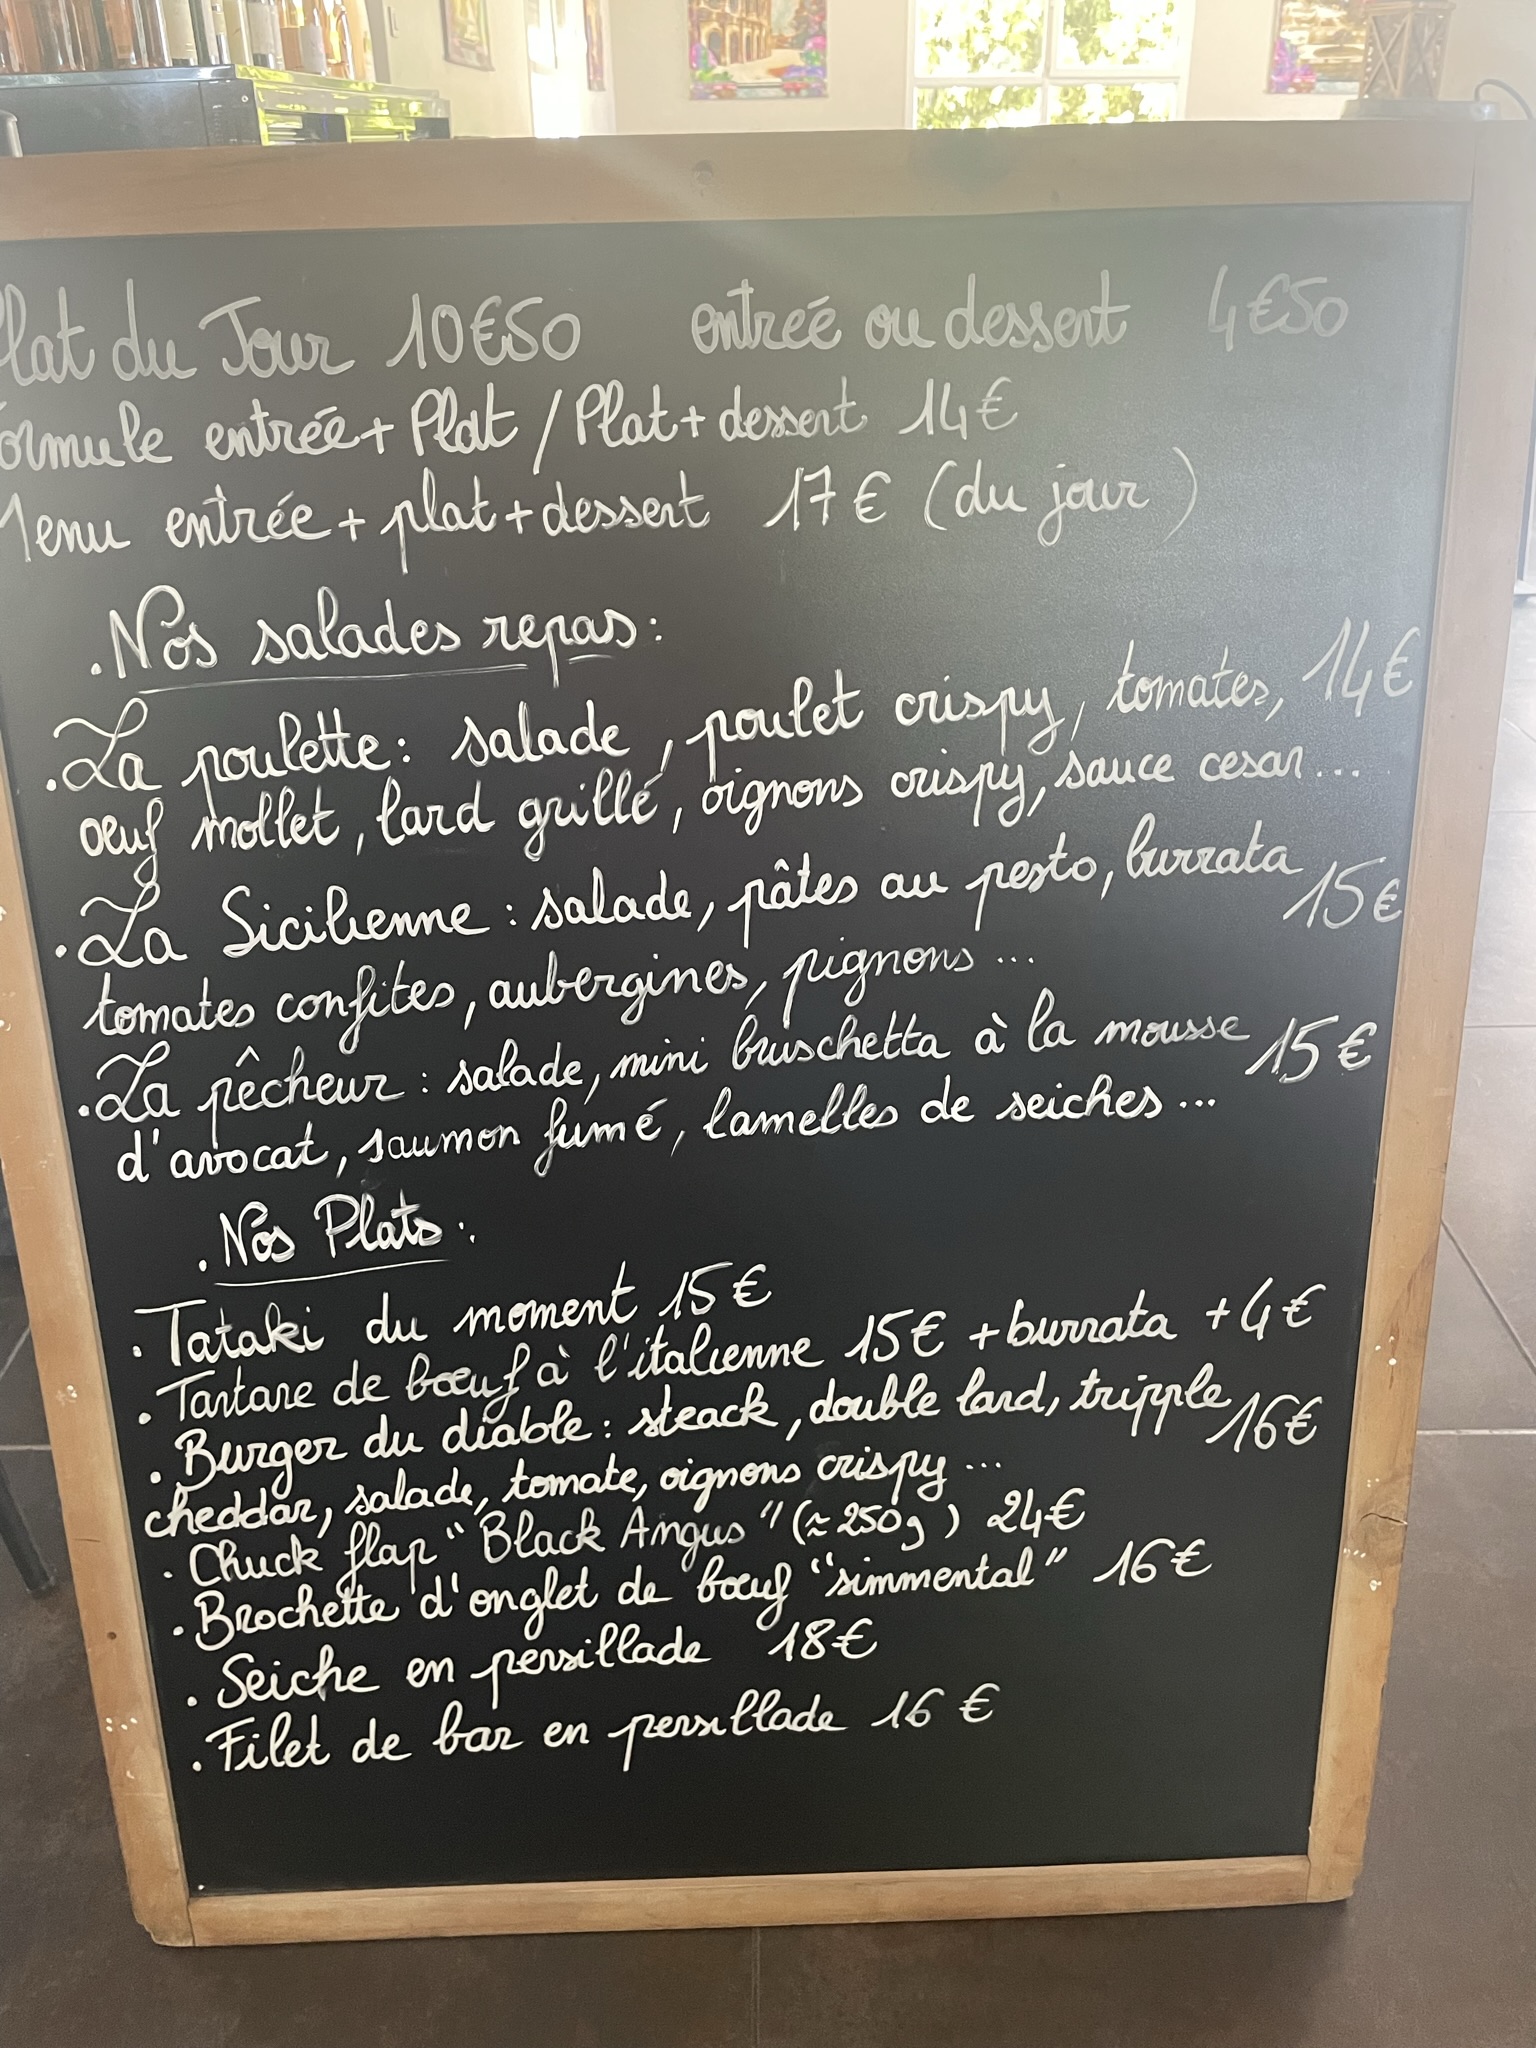 Plat du Jour 10€50 entreé ou dessert 4€50
Formule entrée + Plat / Plat + dessert 14€
Menu entrée + plat + dessert 17€ (du jour)
. Nos salades repas :
. La poulette : salade, poulet crispy, tomates, 14€
œuf mollet, lard grillé, oignons crispy, sauce cesar...
. La Sicilienne : salade, pâtes au pesto, burrata 15€
tomates confites, aubergines, pignons ...
. La pêcheur : salade, mini bruschetta à la mousse 15€
d'avocat, saumon fumé, lamelles de seiches ...
. Nos Plats :
. Tataki du moment 15€
. Tartare de bœuf à l'italienne 15€ + burrata + 4€
. Burger du diable : steack, double lard, tripple 16€
cheddar, salade, tomate, oignons crispy ...
. Chuck flap "Black Angus" (≈ 250g) 24€
. Brochette d'onglet de bœuf "simmental" 16€
. Seiche en persillade 18€
. Filet de bar en persillade 16€